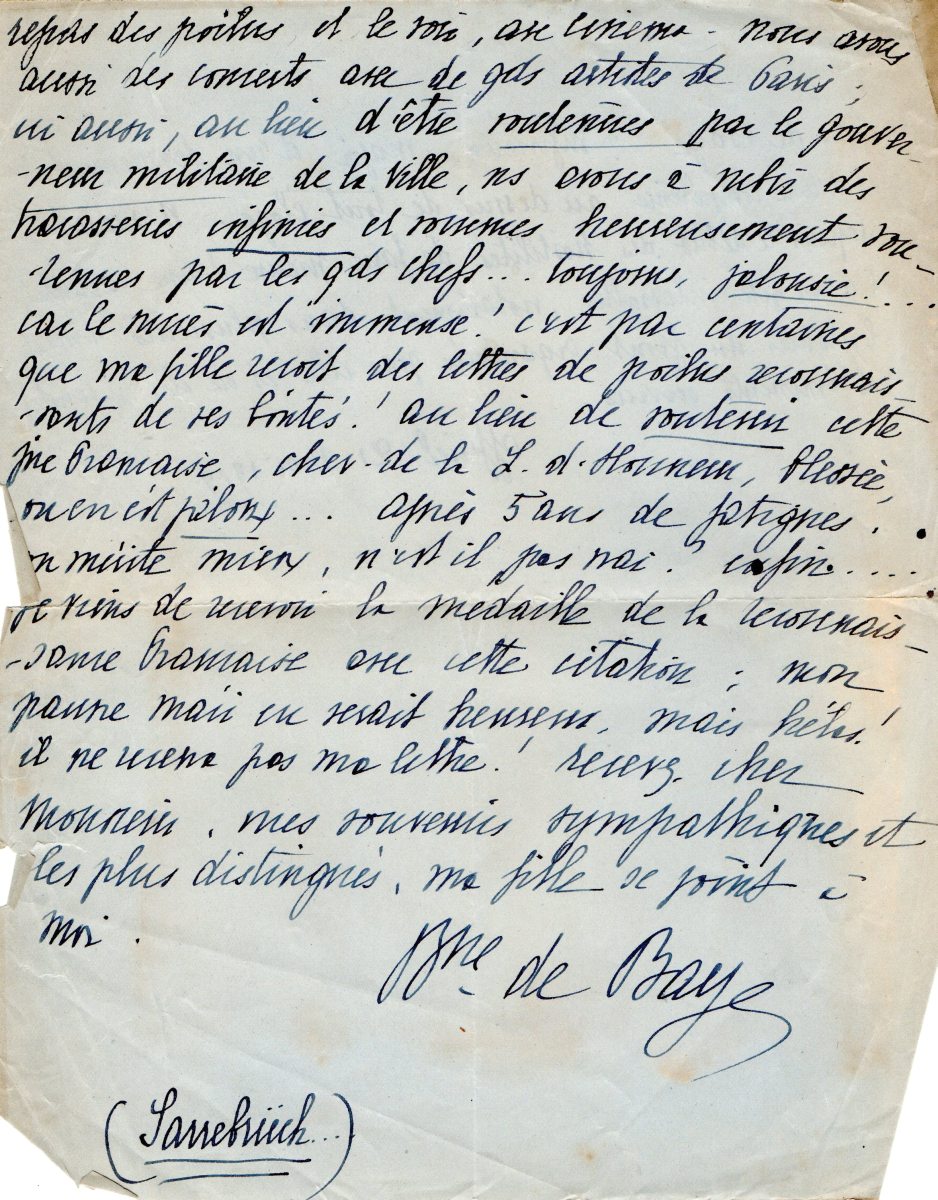 repas des poilus et le soir, avec cinema - nous avons
aussi des concerts avec de gds artistes de Paris ;
ici aussi, au lieu d'être soutenues par le gouver-
-neur militaire de la ville, ns avons à subir des
tracasseries infinies et sommes heureusement sou-
-tenues par les gds chefs... toujours, jalousie !....
car le succès est immense ! c'est par centaines
que ma fille reçoit des lettres de poilus reconnais-
-sants de ses bontés ! au lieu de soutenir cette
jne Française, chev. de la L. d. Honneur, blessée,
on en est jaloux.... après 5 ans de fatigues !
on mérite mieux, n'est il pas vrai ? enfin....
je viens de recevoir la médaille de la reconnais-
-sance Française avec cette citation ; mon
pauvre mari en serait heureux, mais hélas !
il ne recevra pas ma lettre ! recevez, cher
Monsieur, mes souvenirs sympathiques et
les plus distingués, ma fille se joint à
moi.
Bne de Baye
(Sarrebrück...)